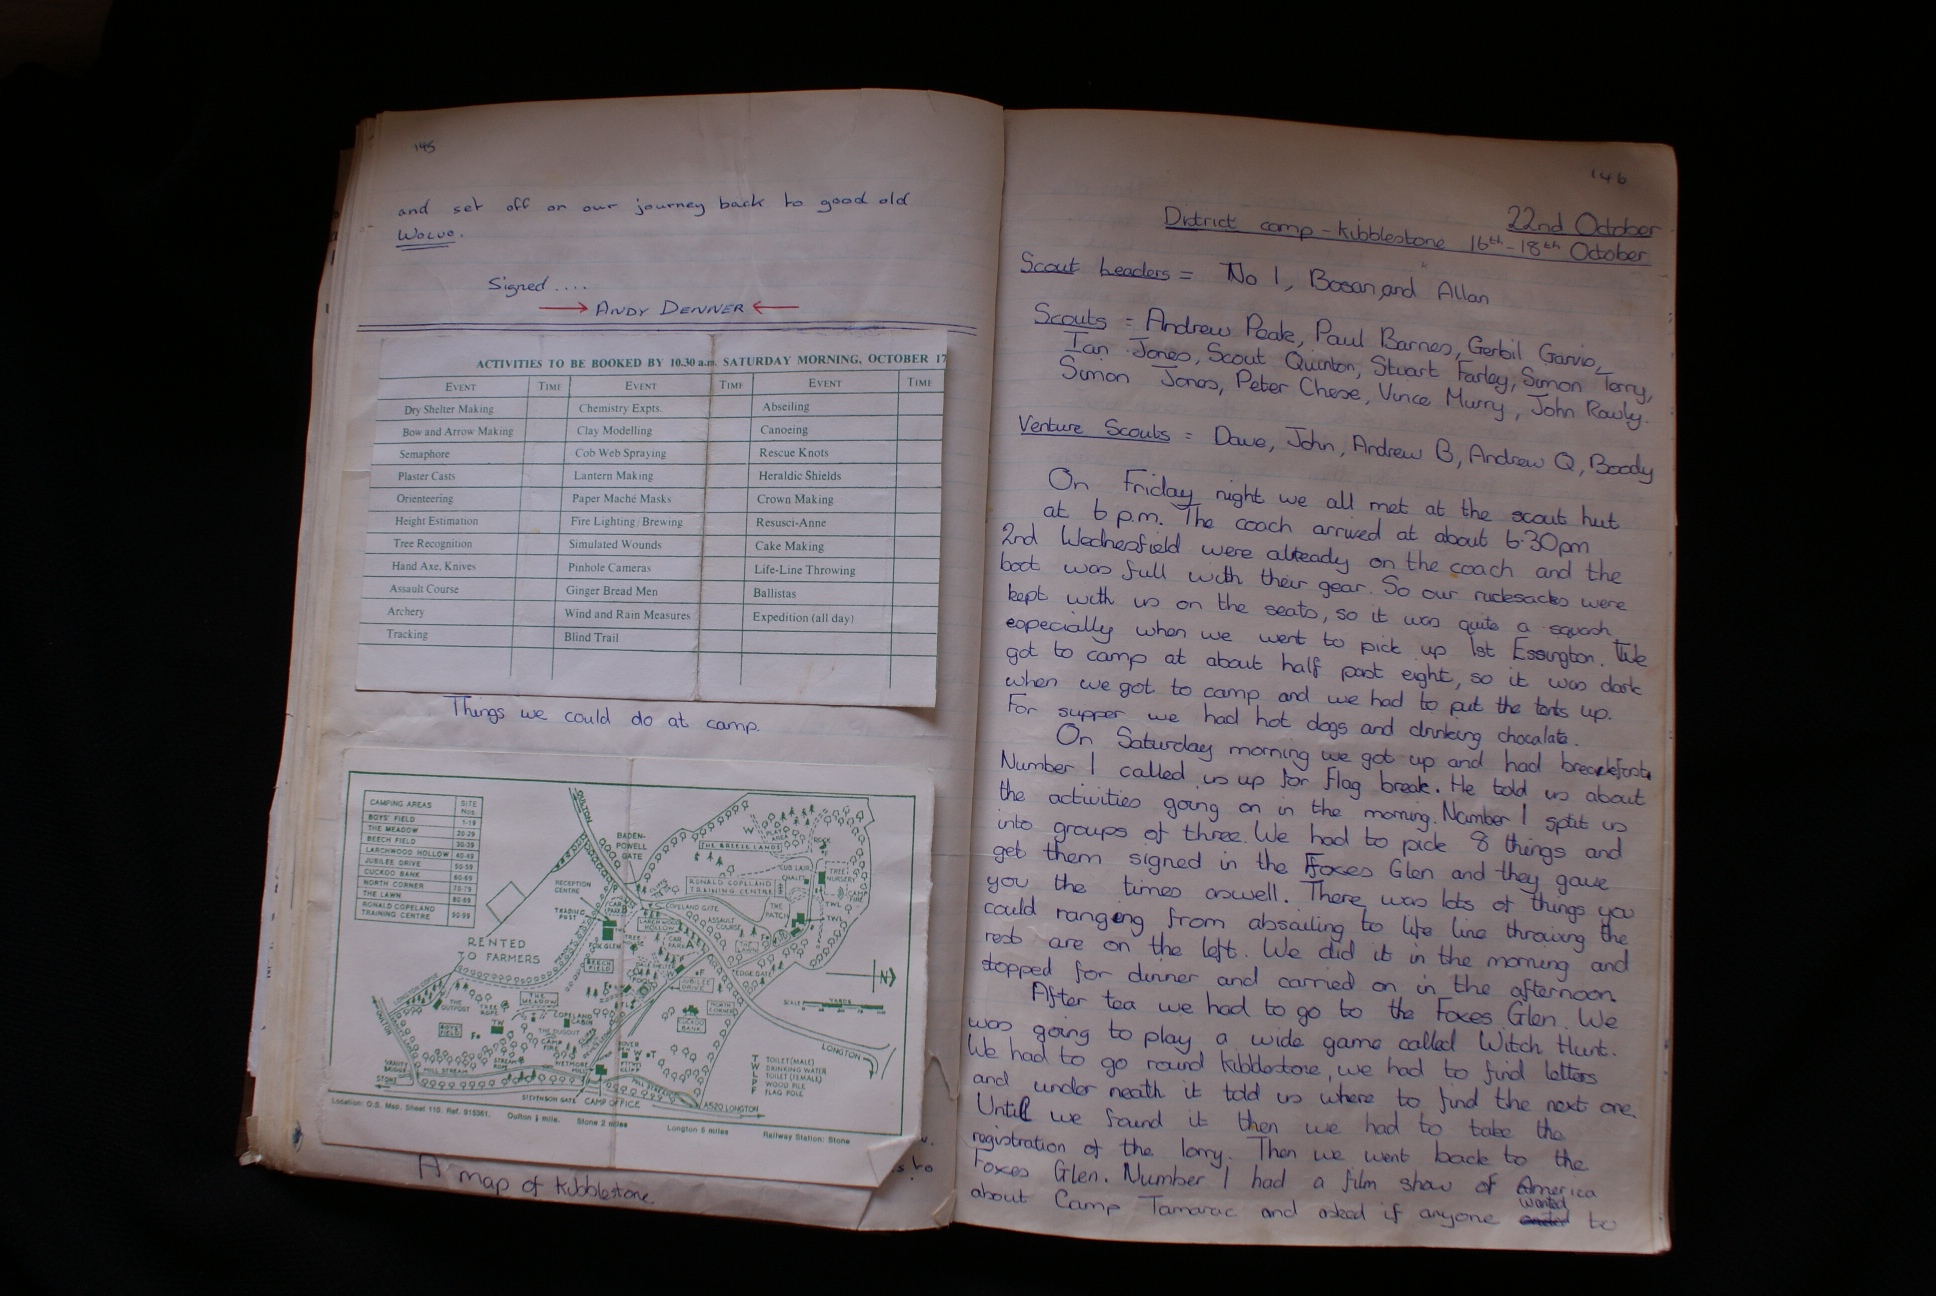 145
and set off on our journey back to good old
WOLVO.
Signed....
ANDY DENNER
ACTIVITIES TO BE BOOKED BY 10.30 a.m. SATURDAY MORNING, OCTOBER 17
EVENT TIME EVENT TIME EVENT TIME
Dry Shelter Making Chemistry Expts. Abseiling
Bow and Arrow Making Clay Modelling Canoeing
Semaphore Cob Web Spraying Rescue Knots
Plaster Casts Lantern Making Heraldic Shields
Orienteering Paper Maché Masks Crown Making
Height Estimation Fire Lighting/Brewing Resusci-Anne
Tree Recognition Simulated Wounds Cake Making
Hand Axe, Knives Pinhole Cameras Life-Line Throwing
Assault Course Ginger Bread Men Ballistas
Archery Wind and Rain Measures Expedition (all day)
Tracking Blind Trail
Things we could do at camp.
CAMPING AREAS SITE Nos.
BOYS' FIELD 1-19
THE MEADOW 20-29
BEECH FIELD 30-39
LARCHWOOD HOLLOW 40-49
JUBILEE DRIVE 50-59
CUCKOO BANK 60-69
NORTH CORNER 70-79
THE LAWN 80-89
RONALD COPELAND
TRAINING CENTRE 90-99
OULTON
BADEN-
POWELL
GATE
THE BREEZE LANDS
PLAY
AREA
RECEPTION
CENTRE
TRADING
POST
RONALD COPELAND
TRAINING CENTRE
TREE
NURSERY
COPELAND GATE
CAR
PARK
LARCHWOOD
HOLLOW
ASSAULT
COURSE
THE
PATCH
TWL
FOX GLEN
BEECH
FIELD
EDGE GATE
JUBILEE
DRIVE
NORTH
CORNER
CUCKOO
BANK
RENTED
TO FARMERS
THE
OUTPOST
THE
MEADOW
COPELAND
CABIN
THE DUGOUT
CAMP
FIRE
BOYS
FIELD
MILL STREAM
STONE
STEVENSON GATE
CAMP OFFICE
A520 LONGTON
N
SCALE YARDS
LONGTON
T TOILET (MALE)
W DRINKING WATER
L TOILET (FEMALE)
P WOOD PILE
F FLAG POLE
Location: O.S. Map. Sheet 110. Ref. 915361. Oulton ½ mile. Stone 2 miles Longton 5 miles Railway Station: Stone
A map of Kibblestone.
146
22nd October
District camp - Kibblestone 16th-18th October
Scout Leaders = No 1, Bosan, and Allan
Scouts = Andrew Peake, Paul Barnes, Gerbil Garvio,
Ian Jones, Scout Quinton, Stuart Farley, Simon Terry,
Simon Jones, Peter Chese, Vince Murry, John Rowly.
Venture Scouts = Dave, John, Andrew B, Andrew Q, Boody
On Friday night we all met at the scout hut
at 6 p.m. The coach arrived at about 6.30pm
2nd Wednesfield were already on the coach and the
boot was full with their gear. So our rucksacks were
kept with us on the seats, so it was quite a squash
especially when we went to pick up 1st Essington. We
got to camp at about half past eight, so it was dark
when we got to camp and we had to put the tents up.
For supper we had hot dogs and drinking chocalate.
On Saturday morning we got up and had breakfast.
Number 1 called us up for flag break. He told us about
the activities going on in the morning. Number 1 split us
into groups of three. We had to pick 8 things and
get them signed in the Foxes Glen and they gave
you the times aswell. There was lots of things you
could ranging from absailing to life line throwing the
rest are on the left. We did it in the morning and
stopped for dinner and carried on in the afternoon.
After tea we had to go to the Foxes Glen. We
was going to play a wide game called Witch Hunt.
We had to go round Kibblestone, we had to find letters
and under neath it told us where to find the next one.
Until we found it then we had to take the
registration of the lorry. Then we went back to the
Foxes Glen. Number 1 had a film show of America
about Camp Tamarac and asked if anyone wanted to